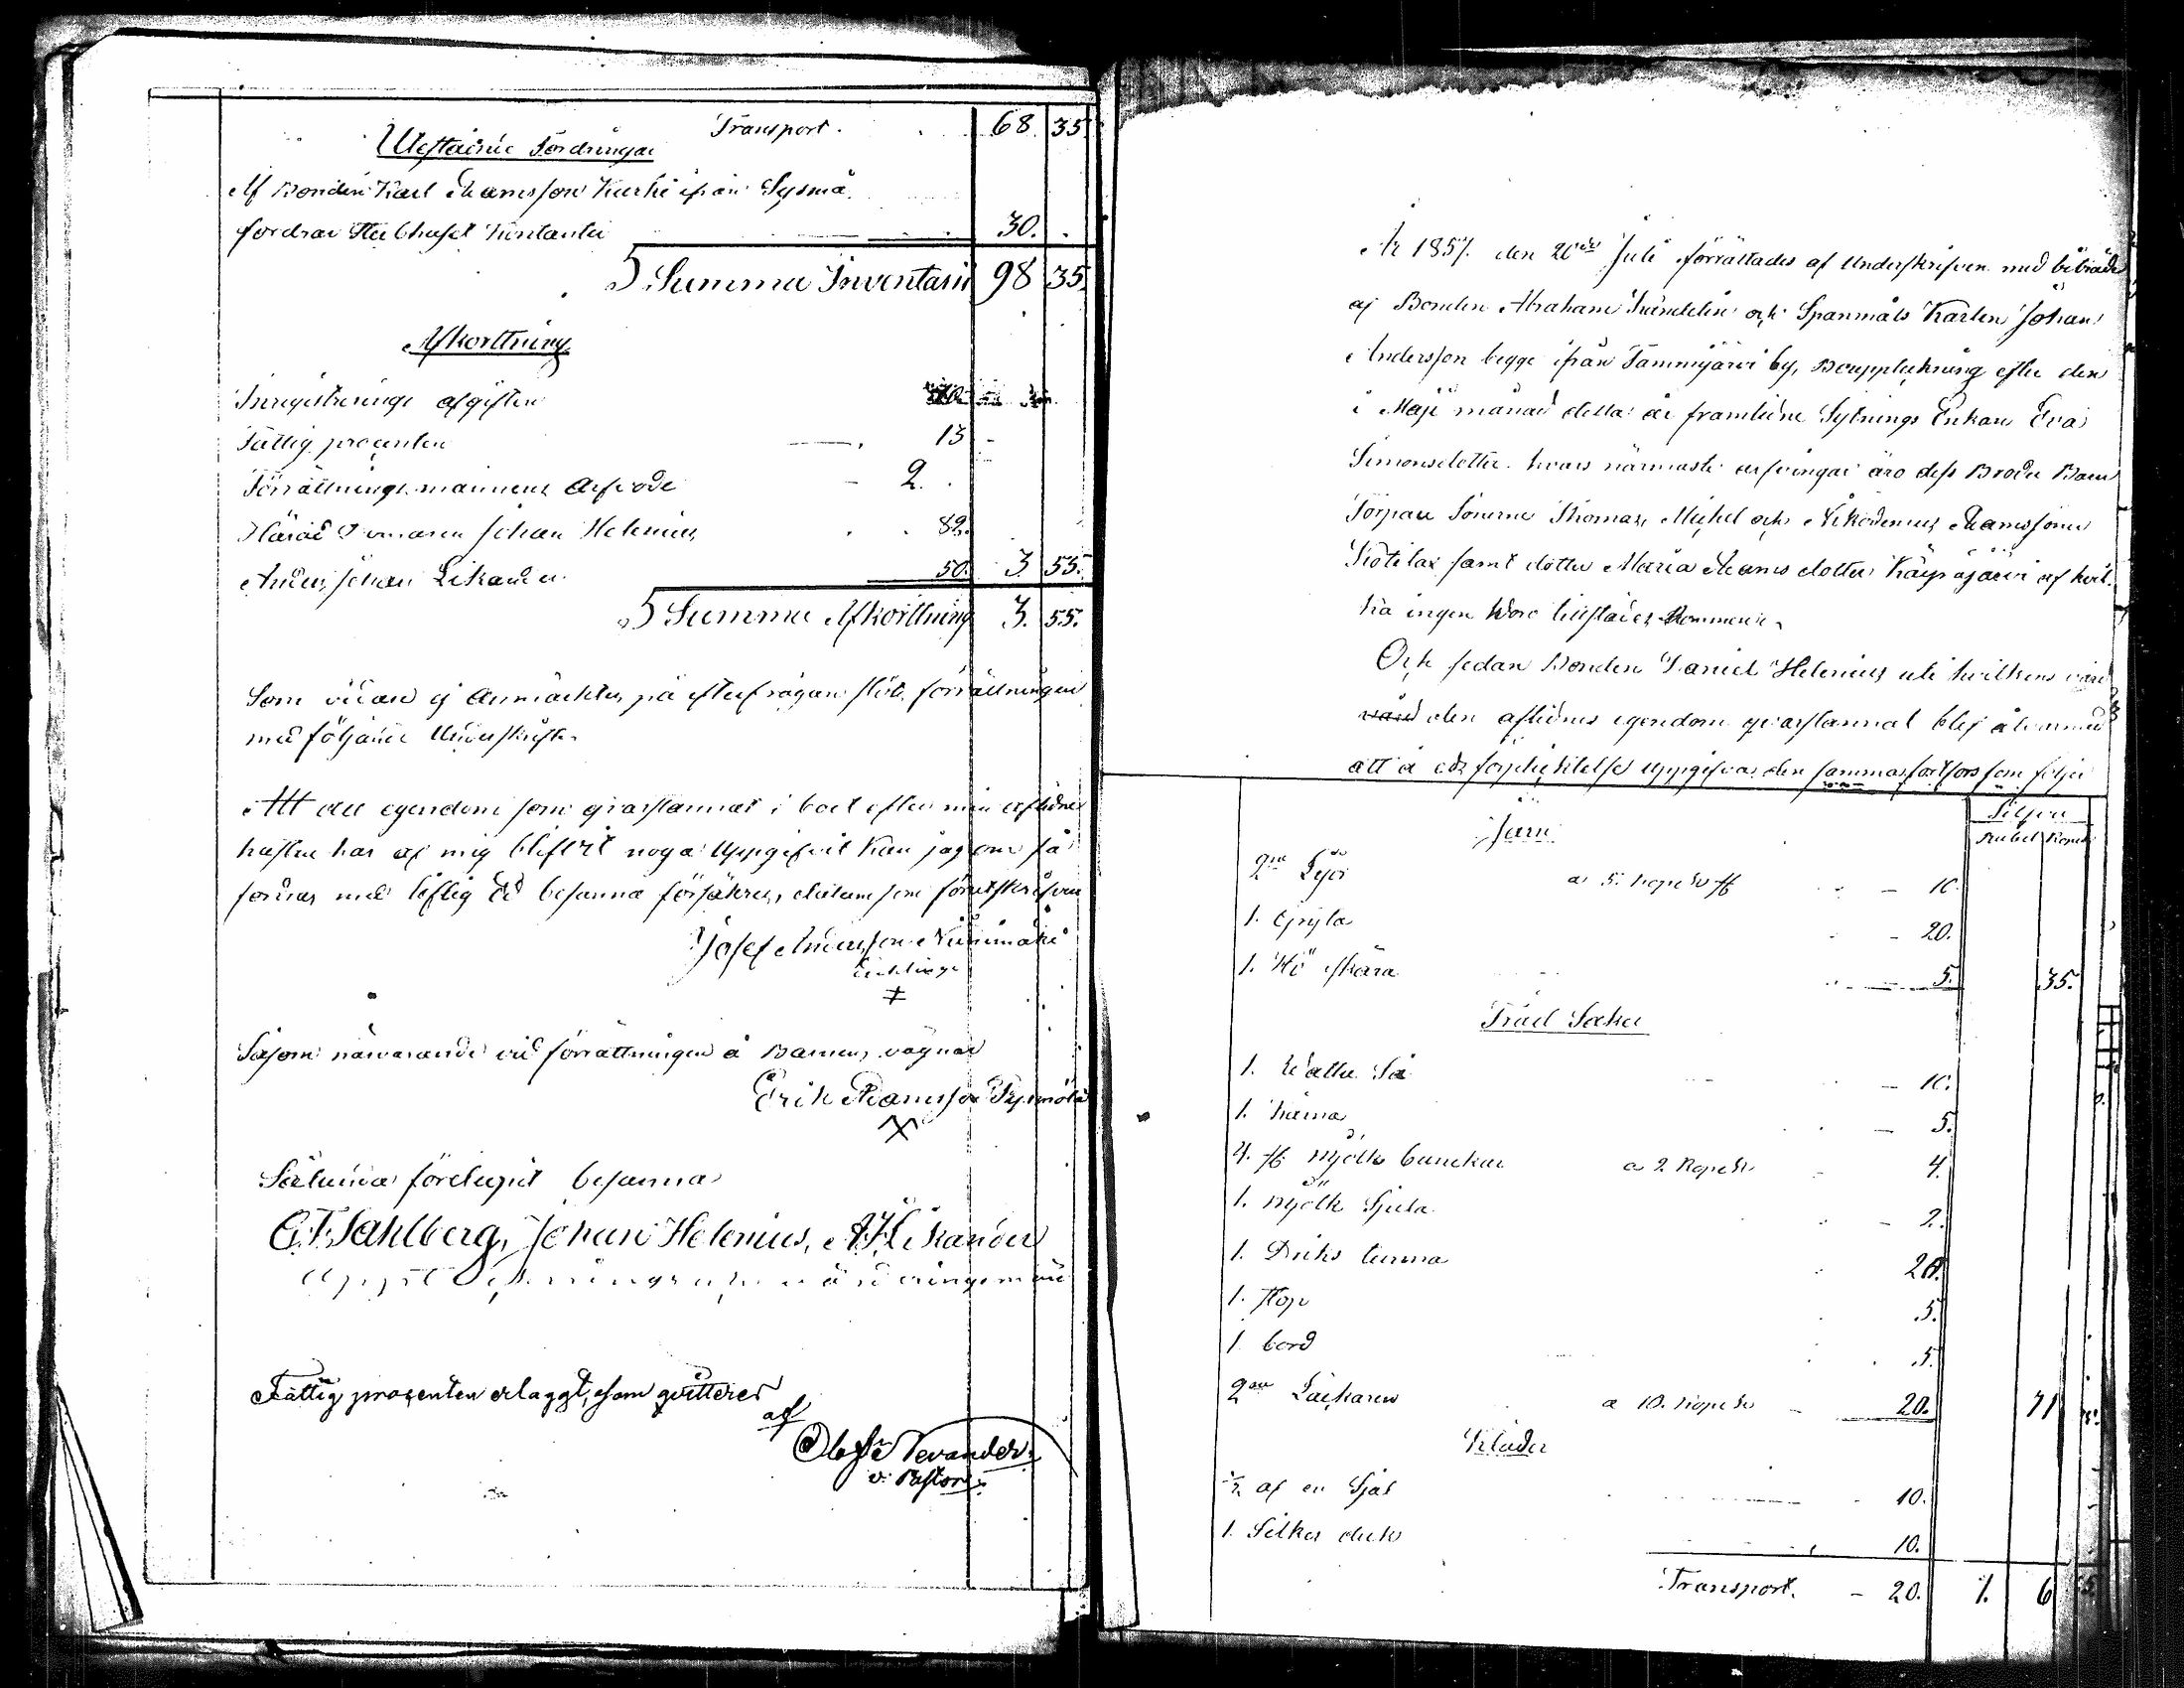 Transport. 68 35
Utestående Fordringar
Af Bonden Karl Mansson Kurki ifrån Sysmä
fordrar Sterbhuset Kontanter 30.
Summa Inventarii 98 35.
Afkorttning
Inregistrerings afgiften
Fattig procenten 13
Förrättnings mannens Arfvode 2.
Johan Helenius 82.
Anders Johan Likander 50. 3 55.
Summa Afkorttning 3. 55.
Som vidare ej anmärktes på efterfrågan slöts förrättningen
med följande Underskrifter
Att all egendom som qvarstannat i boet efter min aflidne
hustru har af mig blifvit noga Uppgifvit kan jag om så
fordras med liflig Ed besanna försäkras, datum som förutskrifven
Josef Andersson Niinimäki
Enklinge
Såsom närvarande vid förrättningen å Barnens vägnar
Erik Mansson
X
Sålunda förelupit besanna
C. F. Sahlberg, Johan Helenius, A. J. Likander
Upptecknings och värderingsmän
Fattig procenten erlaggt, som qvitterer
af
Olof Nevander
v. Pastor.
År 1857. den 20de Juli förrättades af Underskrifven med biträde
af Bonden Abraham och Spanmåls Karlen Johan
Andersson begge ifrån Tammijärvi by, Bouppteckning efter den
i Maji månad detta år framlidne Sytnings Enkan Eva
Simonsdotter hvars närmaste arfvingar äro dess Broder Barn
Torpare Sönerne Thomas, Michel och Nikodemus Mansson
samt dotter Maria Mansdotter af hvil-
ka ingen Wore tillstädes Kommen.
Och sedan Bonden Daniel Helenius uti hvilkens vård
vård den aflidnes egendom qvarstannat blef åtvarnad
att å eds förplicktelse uppgifva den samma som följer
Silfver
Rubel Kopek
Järn
2ne Lyor a 5. kopek st 10.
1. Gryta 20.
1. Hö skära 5. 35.
Träd Saker
1. Watten Så 10.
1. Kärna 5.
4. st Mjölk bunckar a 2 Kopek 4.
1. Mjölk Stjula 2.
1. Driks tunna 20.
1. Stop 5.
1 bord 5.
2ne Läckaren a 10. Kopek 20. 71
Kläder
1/2 af en Sjal 10.
1. Silkes duk 10.
Transport. 20. 1. 6